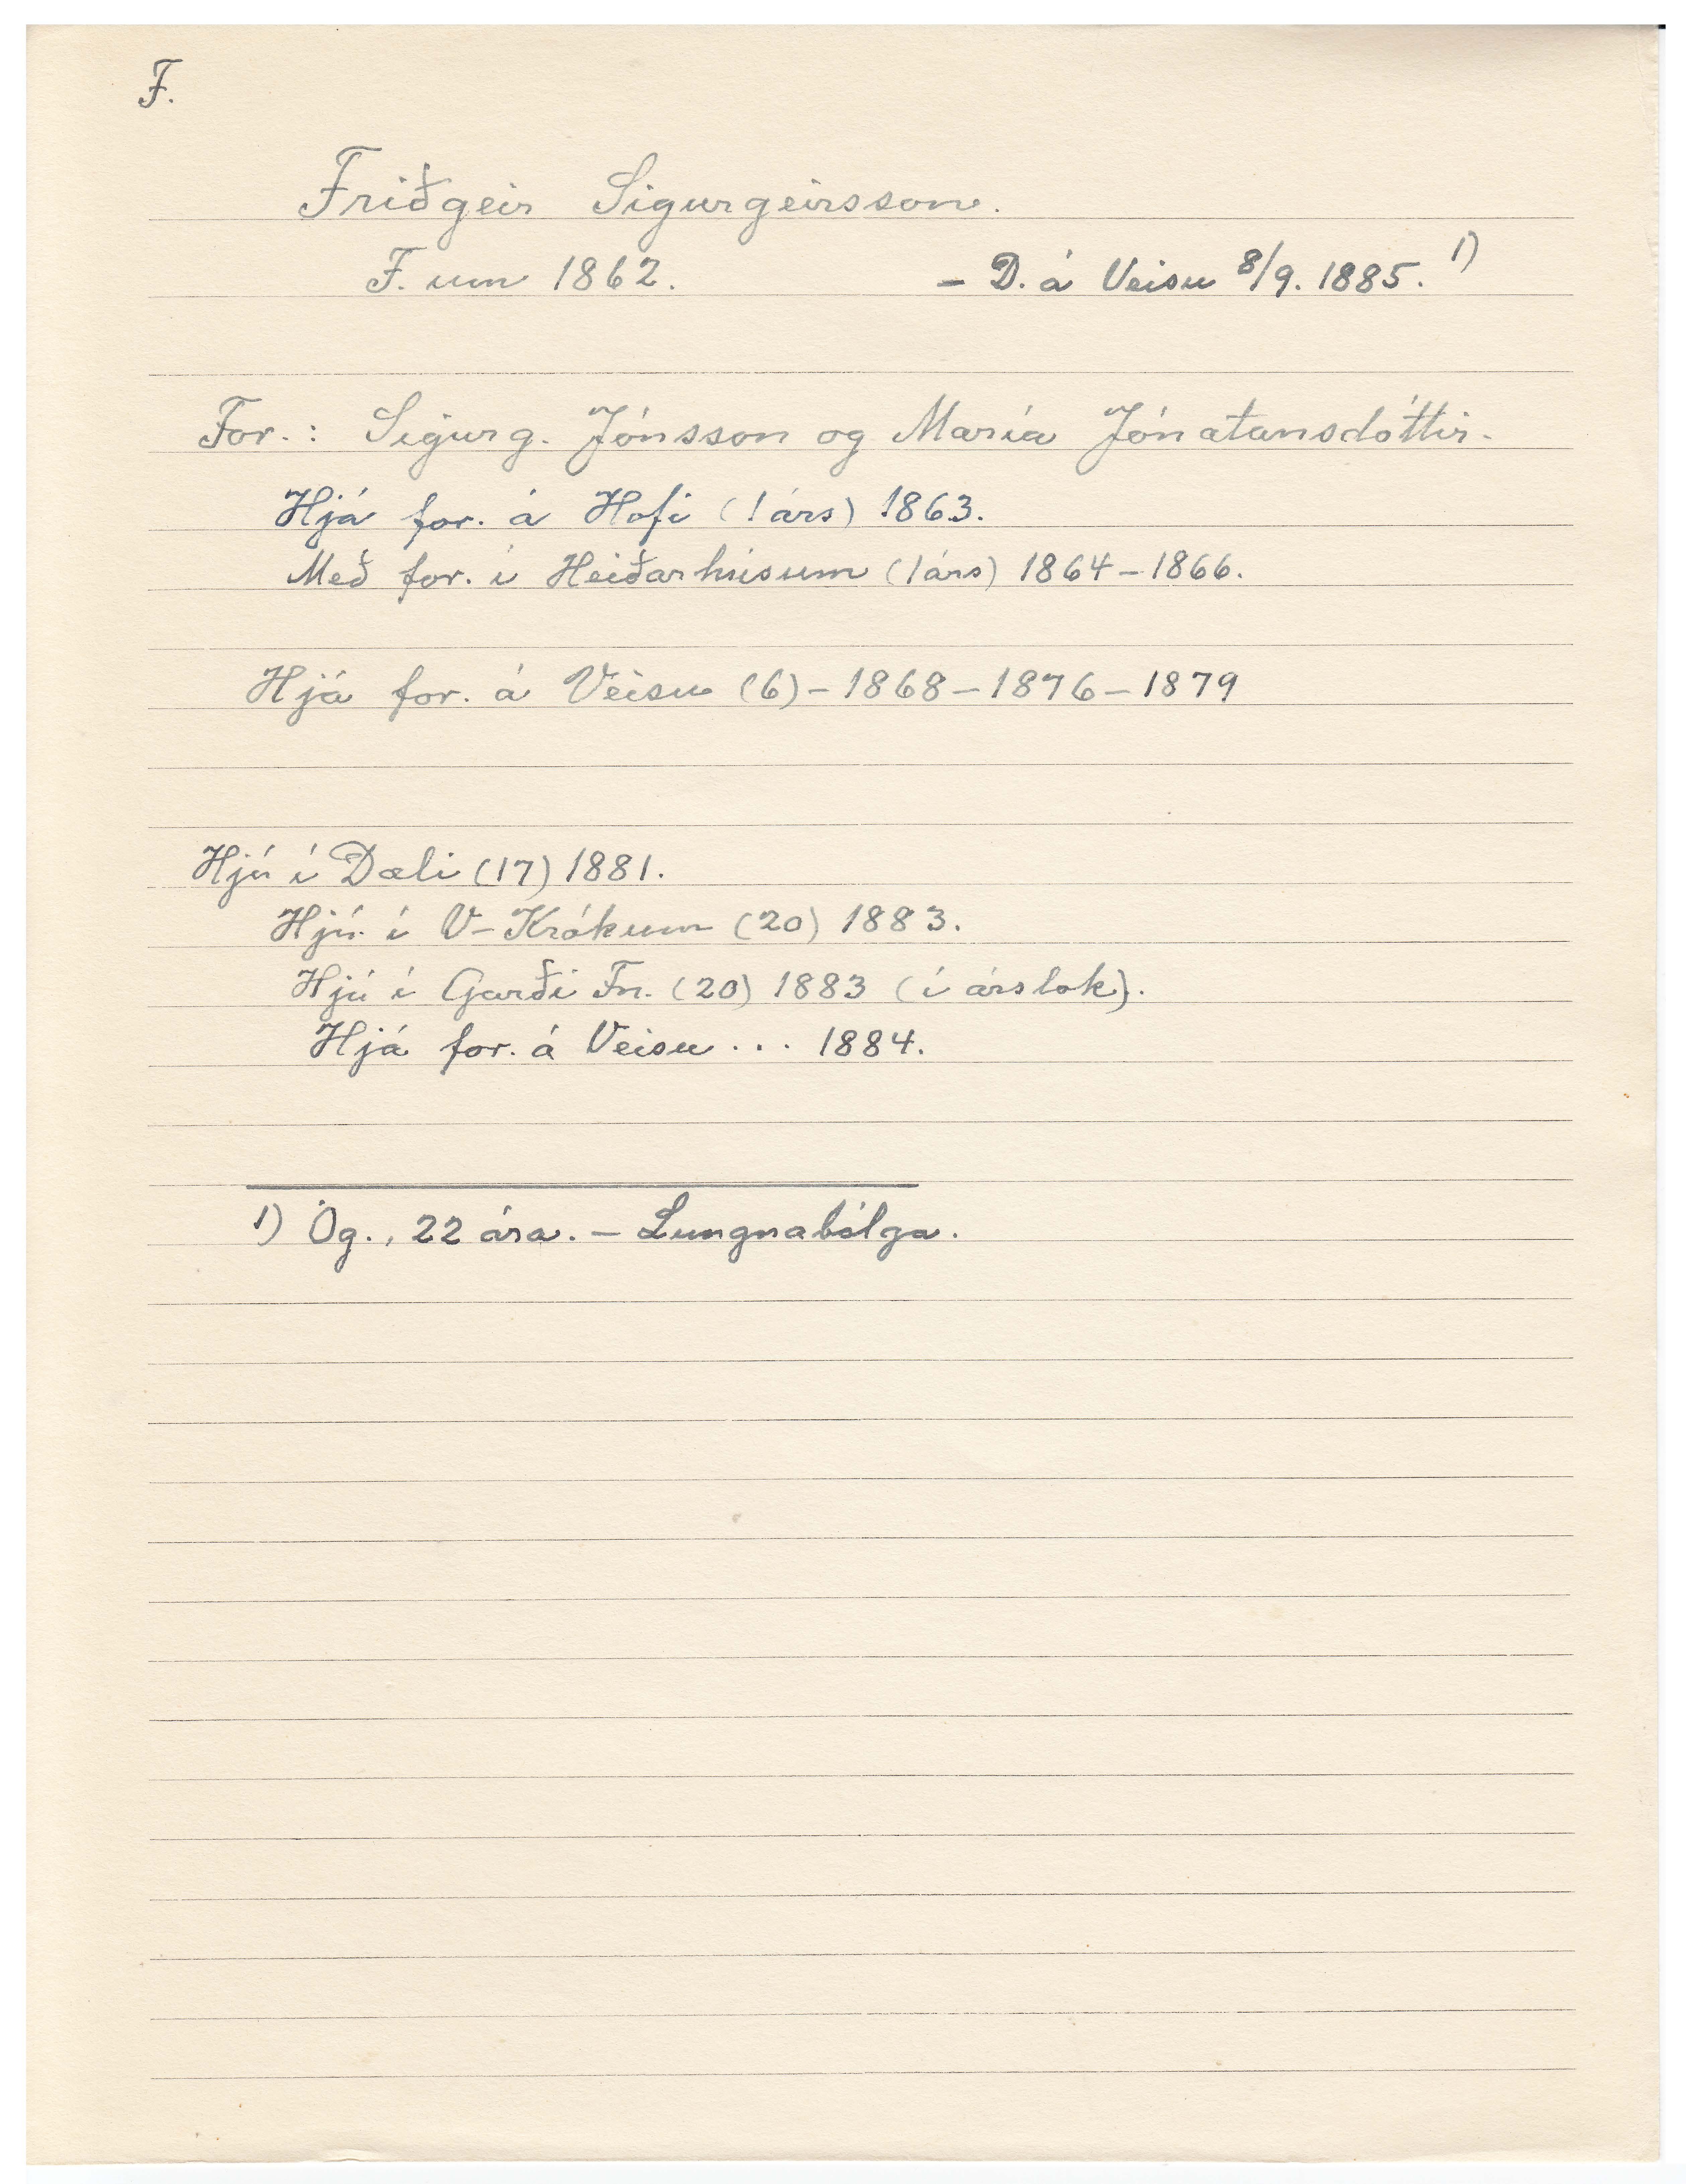 F.
Friðgeir Sigurgeirsson.
F. um 1862. – D. á Veisu 8/9. 1885. 1)
For.: Sigurg. Jónsson og María Jónatansdóttir.
Hjá for. á Hofi (1 árs) 1863.
Með for. í Heiðarhúsum (1 árs) 1864–1866.
Hjá for. á Veisu (6) – 1868 – 1876 – 1879
Hjú í Dæli (17) 1881.
Hjú í V-Krókum (20) 1883.
Hjú í Garði Fn. (20) 1883 (í árslok).
Hjá for. á Veisu . . . 1884.
1) Óg., 22 ára. – Lungnabólga.